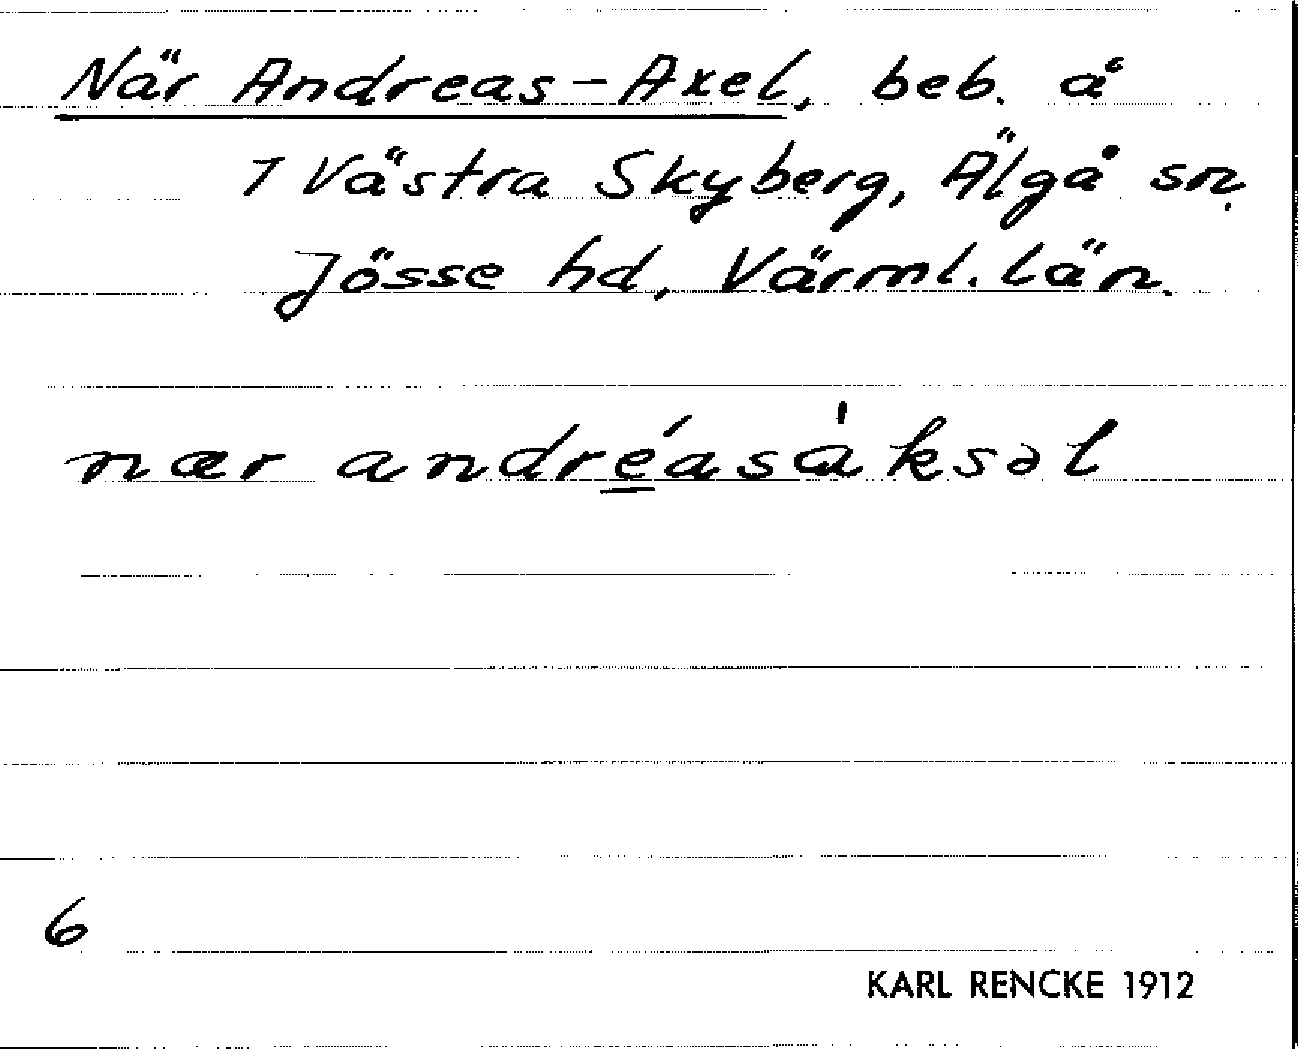 När Andreas-Axel, beb. å
1 Västra Skyberg, Älgå sn.
Jösse hd, Värml. län.
nær andre̲´asa̍ksəl
6
KARL RENCKE 1912